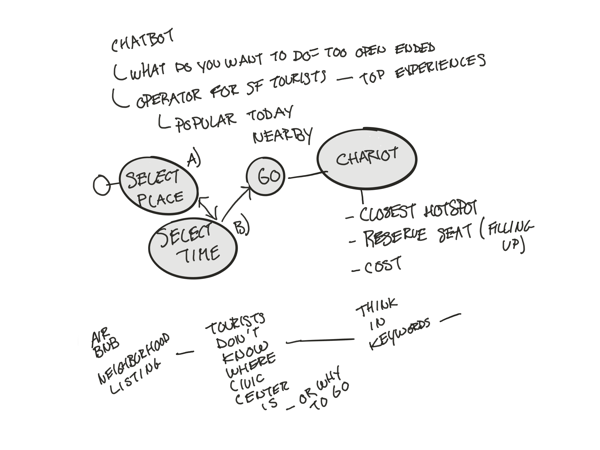 CHATBOT
WHAT DO YOU WANT TO DO = TOO OPEN ENDED
OPERATOR FOR SF TOURISTS — TOP EXPERIENCES
POPULAR TODAY
NEARBY
A)
SELECT
PLACE
GO
CHARIOT
B)
SELECT
TIME
- CLOSEST HOTSPOT
- RESERVE SEAT (FILLING
UP)
- COST
AIR
BNB
NEIGHBORHOOD
LISTING —
TOURISTS
DON'T
KNOW
WHERE
CIVIC
CENTER
IS - OR WHY
TO GO
THINK
IN
KEYWORDS —